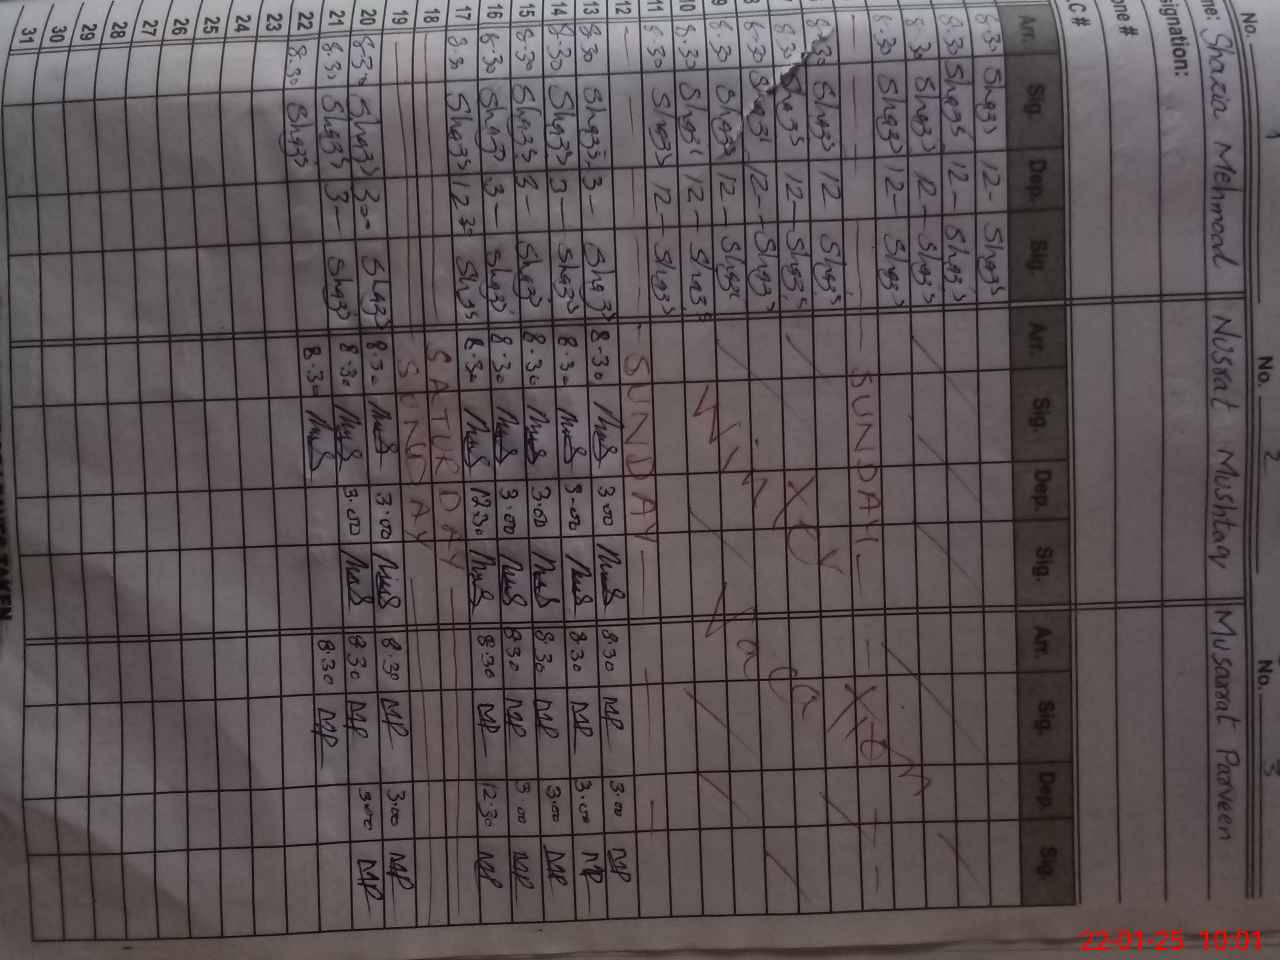 No. No. 2 No. 3
ne: Shazia Mehmood Nusrat Mushtaq Musarrat Parveen
signation:
one #
.C #
Arr. Sig. Dep. Sig. Arr. Sig. Dep. Sig. Arr. Sig. Dep. Sig.
8.30 Shazs 12- Shazs
8.30 Shazs 12- Shazs
8.30 Shazs 12- Shazs
8.30 Shazs 12- Shazs
— — — — SUNDAY —
8.30 Shazs 12 Shazs
8.30 Shazs 12- Shazs
8 8.30 Shazs 12- Shazs
9 8.30 Shazs 12- Shazs
10 8.30 Shazs 12- Shazs
11 8.30 Shazs 12- Shazs
12 — — — — SUNDAY —
13 8.30 Shazs 3- Shazs 8.30 Nus 3.00 Nus 8.30 MP 3.00 MP
14 8.30 Shazs 3- Shazs 8.30 Nus 3.00 Nus 8.30 MP 3.00 MP
15 8.30 Shazs 3- Shazs 8.30 Nus 3.00 Nus 8.30 MP 3.00 MP
16 8.30 Shazs 3- Shazs 8.30 Nus 3.00 Nus 8.30 MP 3.00 MP
17 8.30 Shazs 12.30 Shazs 8.30 Nus 12.30 Nus 8.30 MP 12.30 MP
18 SATURDAY
19 SUNDAY
20 8.30 Shazs 3.00 Shazs 8.30 Nus 3.00 Nus 8.30 MP 3.00 MP
21 8.30 Shazs 3- Shazs 8.30 Nus 3.00 Nus 8.30 MP 3.00 MP
22 8.30 Shazs 8.30 Nus 8.30 MP
23
24
25
26
27
28
29
30
31
22-01-25 10:01